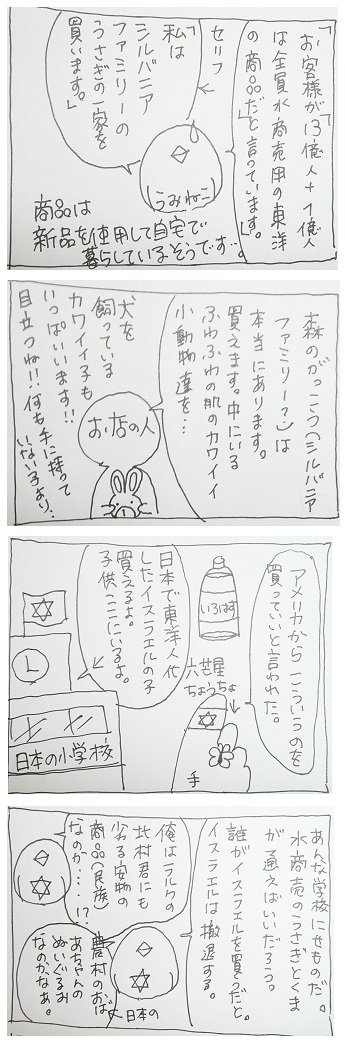 「お客様が13億人+1億人
は全員水商売用の東洋
の商品だ」と言っています。
セリフ
「私は
シルバニア
ファミリーの
うさぎの一家を
買います。」
うみねこ
商品は
新品を使用して自宅で
暮らしているそうです。
森のがっこう(シルバニア
ファミリー?)は
本当にあります。
買えます。中にいる
ふわふわの肌のカワイイ
小動物達を…
お店の人
犬を
飼っている
カワイイ子も
いっぱいいます!!
目立つね!!何も手に持って
いない子より、
アメリカからこういうのを
買っていいと言われた。
いろはす
六芒星
ちょうちょ
手
日本で東洋人化
したイスラエルの子
買えるよ。
子供ここにいるよ。
L
日本の小学校
あんな学校にせものだ。
水商売のうさぎとくま
が通えばいいだろう。
誰がイスラエルを買うだと。
イスラエルは撤退する。
俺はラルクの
北村君にも
劣る安物の
商品(民族)
なのか…!?
農村のおば
あちゃんの
ぬいぐるみ
なのかなぁ。
日本の